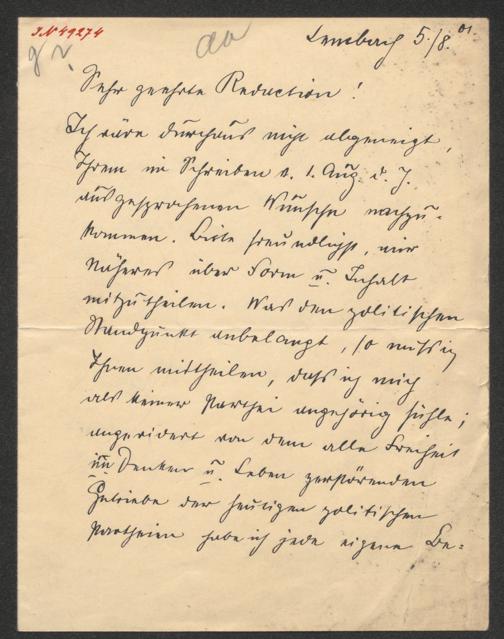 J.N 49274
Lembach 5./8. 01.
Sehr geehrte Redaction!
Ich wäre durchaus nicht abgeneigt,
Ihrem im Schreiben v. 1. Aug. d. J.
ausgesprochenen Wunsche nachzu-
kommen. Bitte freundlichst, mir
Näheres über Form u. Inhalt
mitzutheilen. Was den politischen
Standpunkt anbelangt, so muß ich
Ihnen mittheilen, daß ich mich
als keiner Parthei angehörig fühle;
angewidert von dem alle Freiheit
im Denken u. Leben zerstörenden
Getriebe der heutigen politischen
Partheien habe ich jede eigene Be=